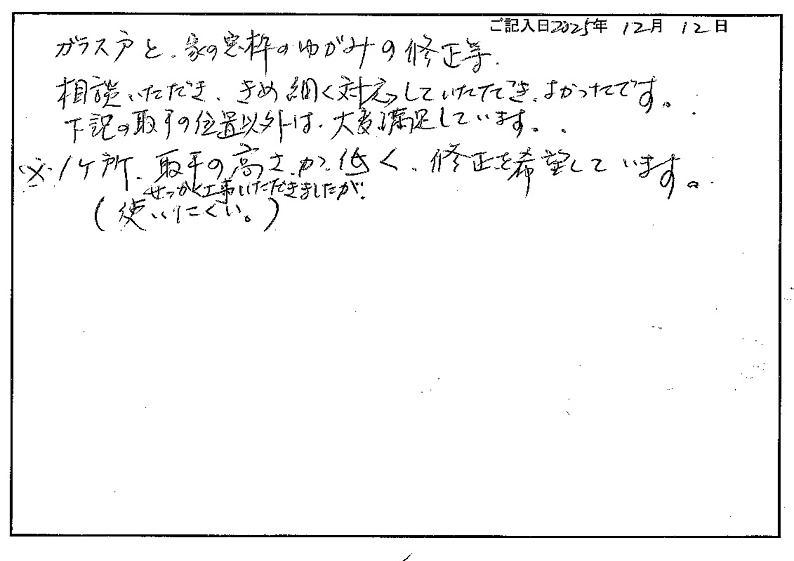 ご記入日2025年 12月 12日
ガラス戸と、家の窓枠のゆがみの修正等、
相談いただき、きめ細く対応していただき、よかったです。
下記の取手の位置以外は、大変満足しています。
※1ケ所、取手の高さが低く、修正を希望しています。
せっかく工事いただきましたが、
(使いにくい。)